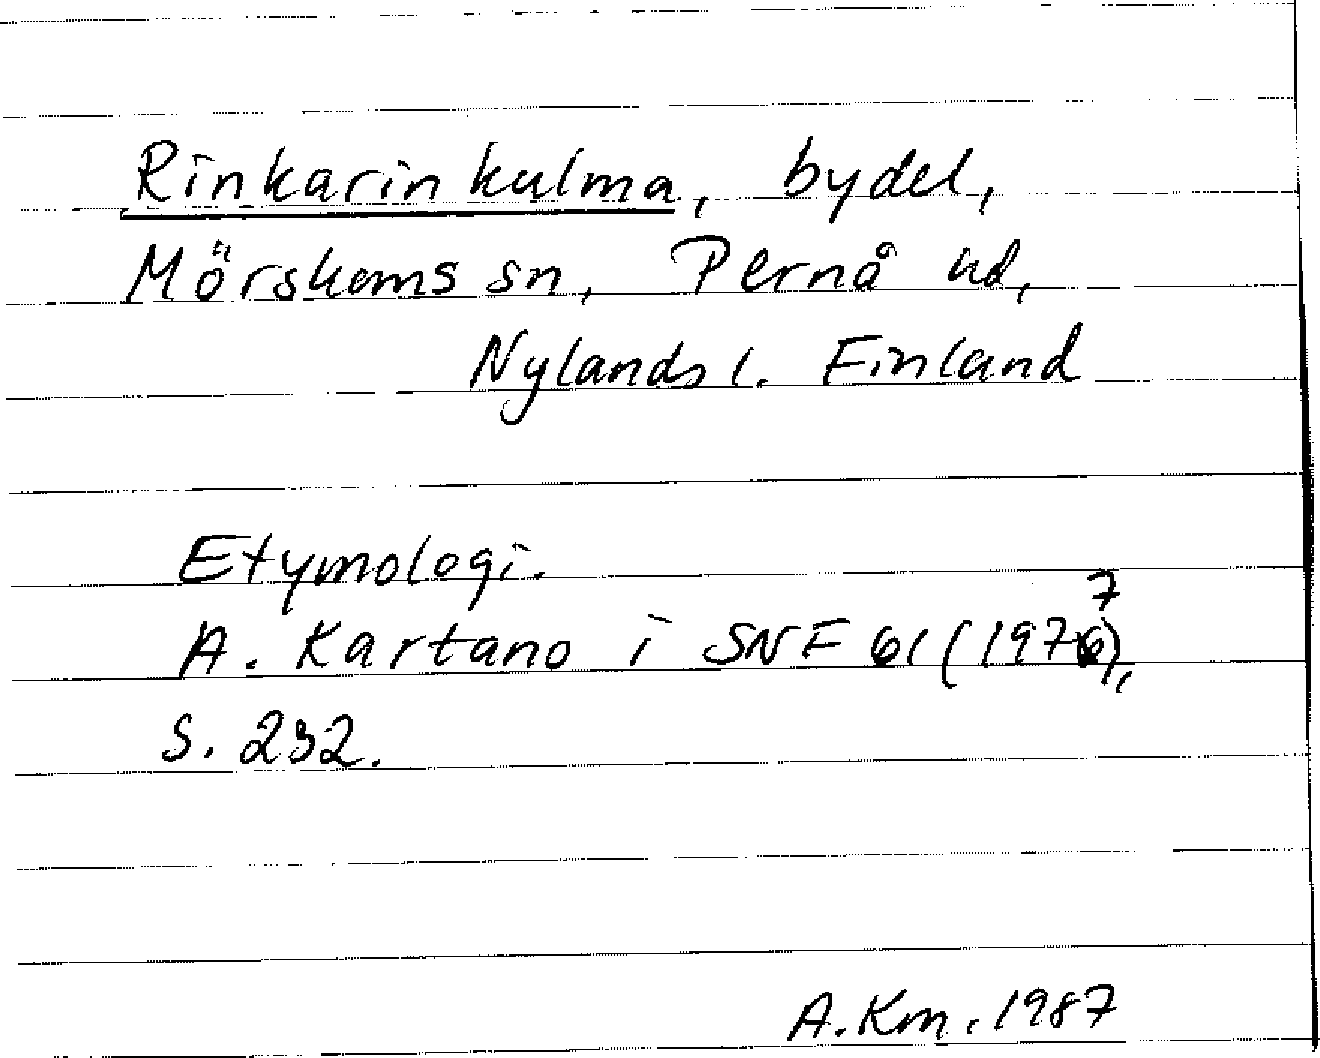 Rinkarinkulma, bydel,
Mörskoms sn, Pernå hd,
Nylands l. Finland
Etymologi.
A. Kartano i SNF 61 (1977),
S. 232.
A. Km. 1987